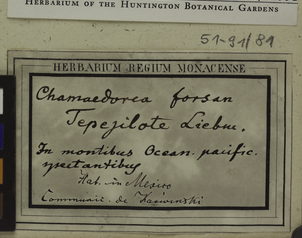 HERBARIUM OF THE HUNTINGTON BOTANICAL GARDENS
51-91/81
HERBARIUM REGIUM MONACENSE
Chamaedorea forsan
Tepejilote Liebm.
In montibus Ocean. pacific.
spectantibus
Hab. in Mexico
Communic. de Karwinski